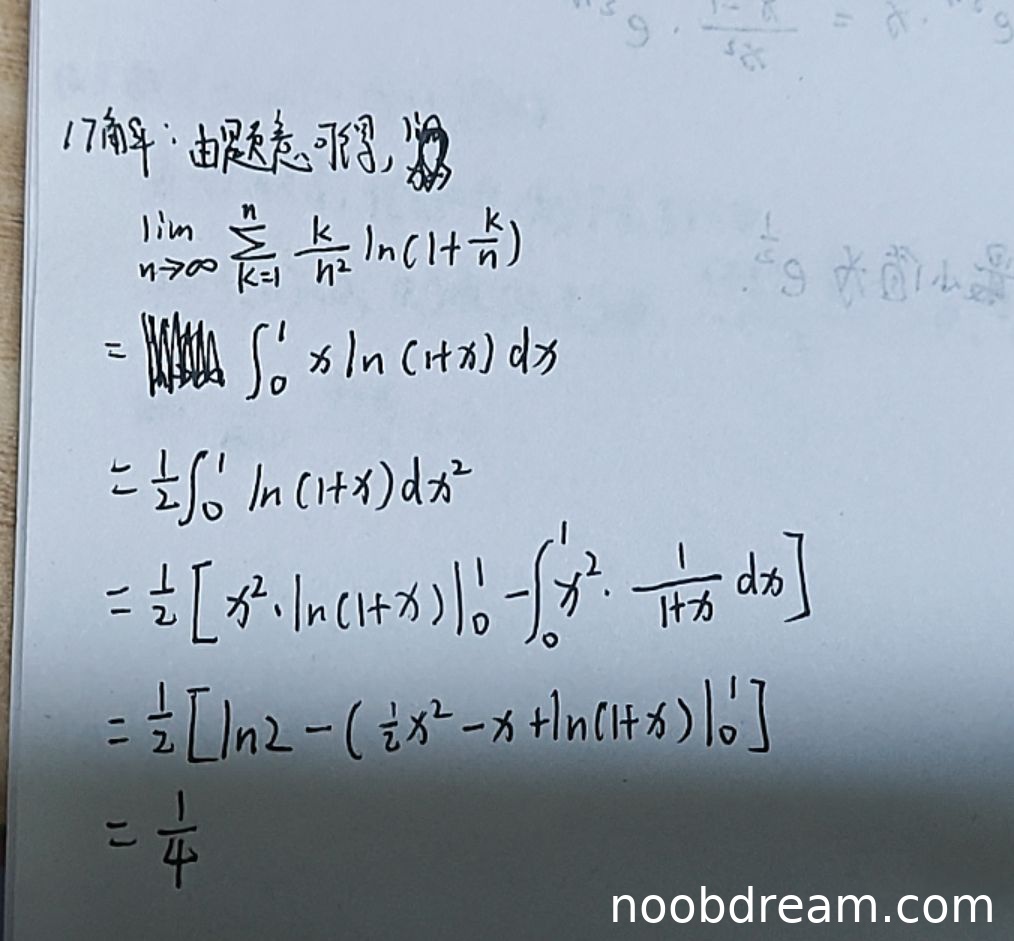 e³ˣ · x = (x-1)/x² · e
最小值为 e^{1/2}.
17解：由题意可得，
lim_{n→∞} ∑_{k=1}^{n} k/n² ln(1+k/n)
= ∫₀¹ x ln(1+x) dx
= 1/2 ∫₀¹ ln(1+x) dx²
= 1/2 [ x² · ln(1+x) |₀¹ - ∫₀¹ x² · 1/(1+x) dx ]
= 1/2 [ ln2 - ( 1/2 x² - x + ln(1+x) ) |₀¹ ]
= 1/4
noobdream.com